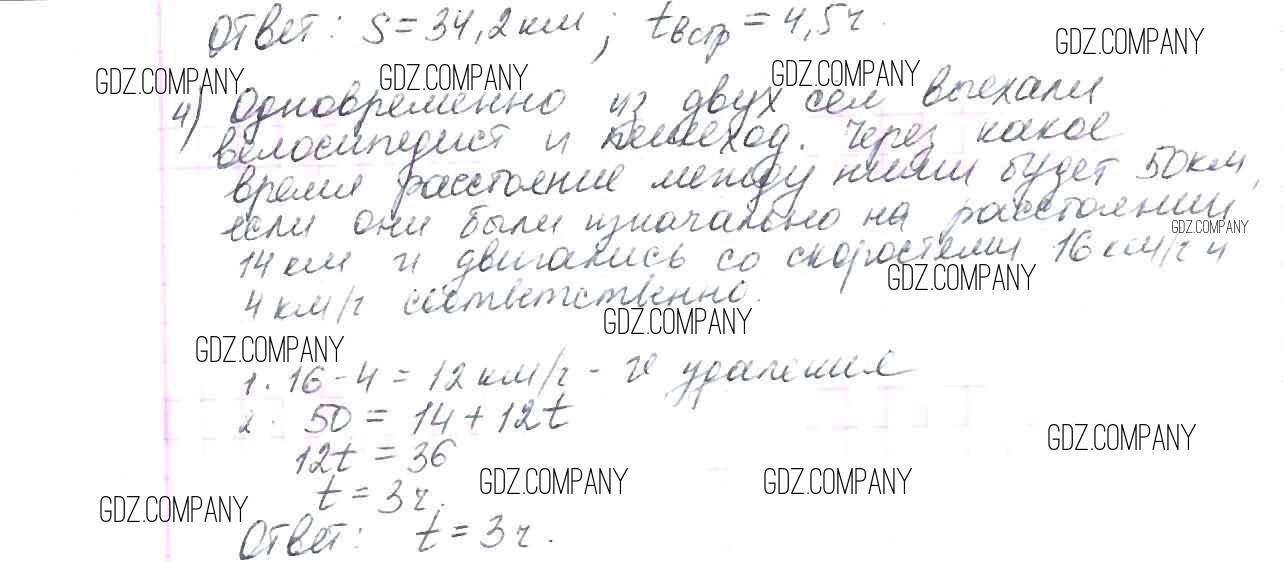 Ответ: S = 34,2 км ; tвстр = 4,5 ч.
GDZ.COMPANY
GDZ.COMPANY GDZ.COMPANY GDZ.COMPANY
4) Одновременно из двух сел выехали
велосипедист и пешеход. Через какое
время расстояние между ними будет 50 км,
если они были изначально на расстоянии
GDZ.COMPANY
14 км и двигались со скоростями 16 км/ч и
GDZ.COMPANY
4 км/ч соответственно.
GDZ.COMPANY
GDZ.COMPANY
1. 16 - 4 = 12 км/ч - v удаления
2. 50 = 14 + 12t
GDZ.COMPANY
12t = 36
GDZ.COMPANY GDZ.COMPANY
t = 3 ч.
GDZ.COMPANY
Ответ: t = 3 ч.